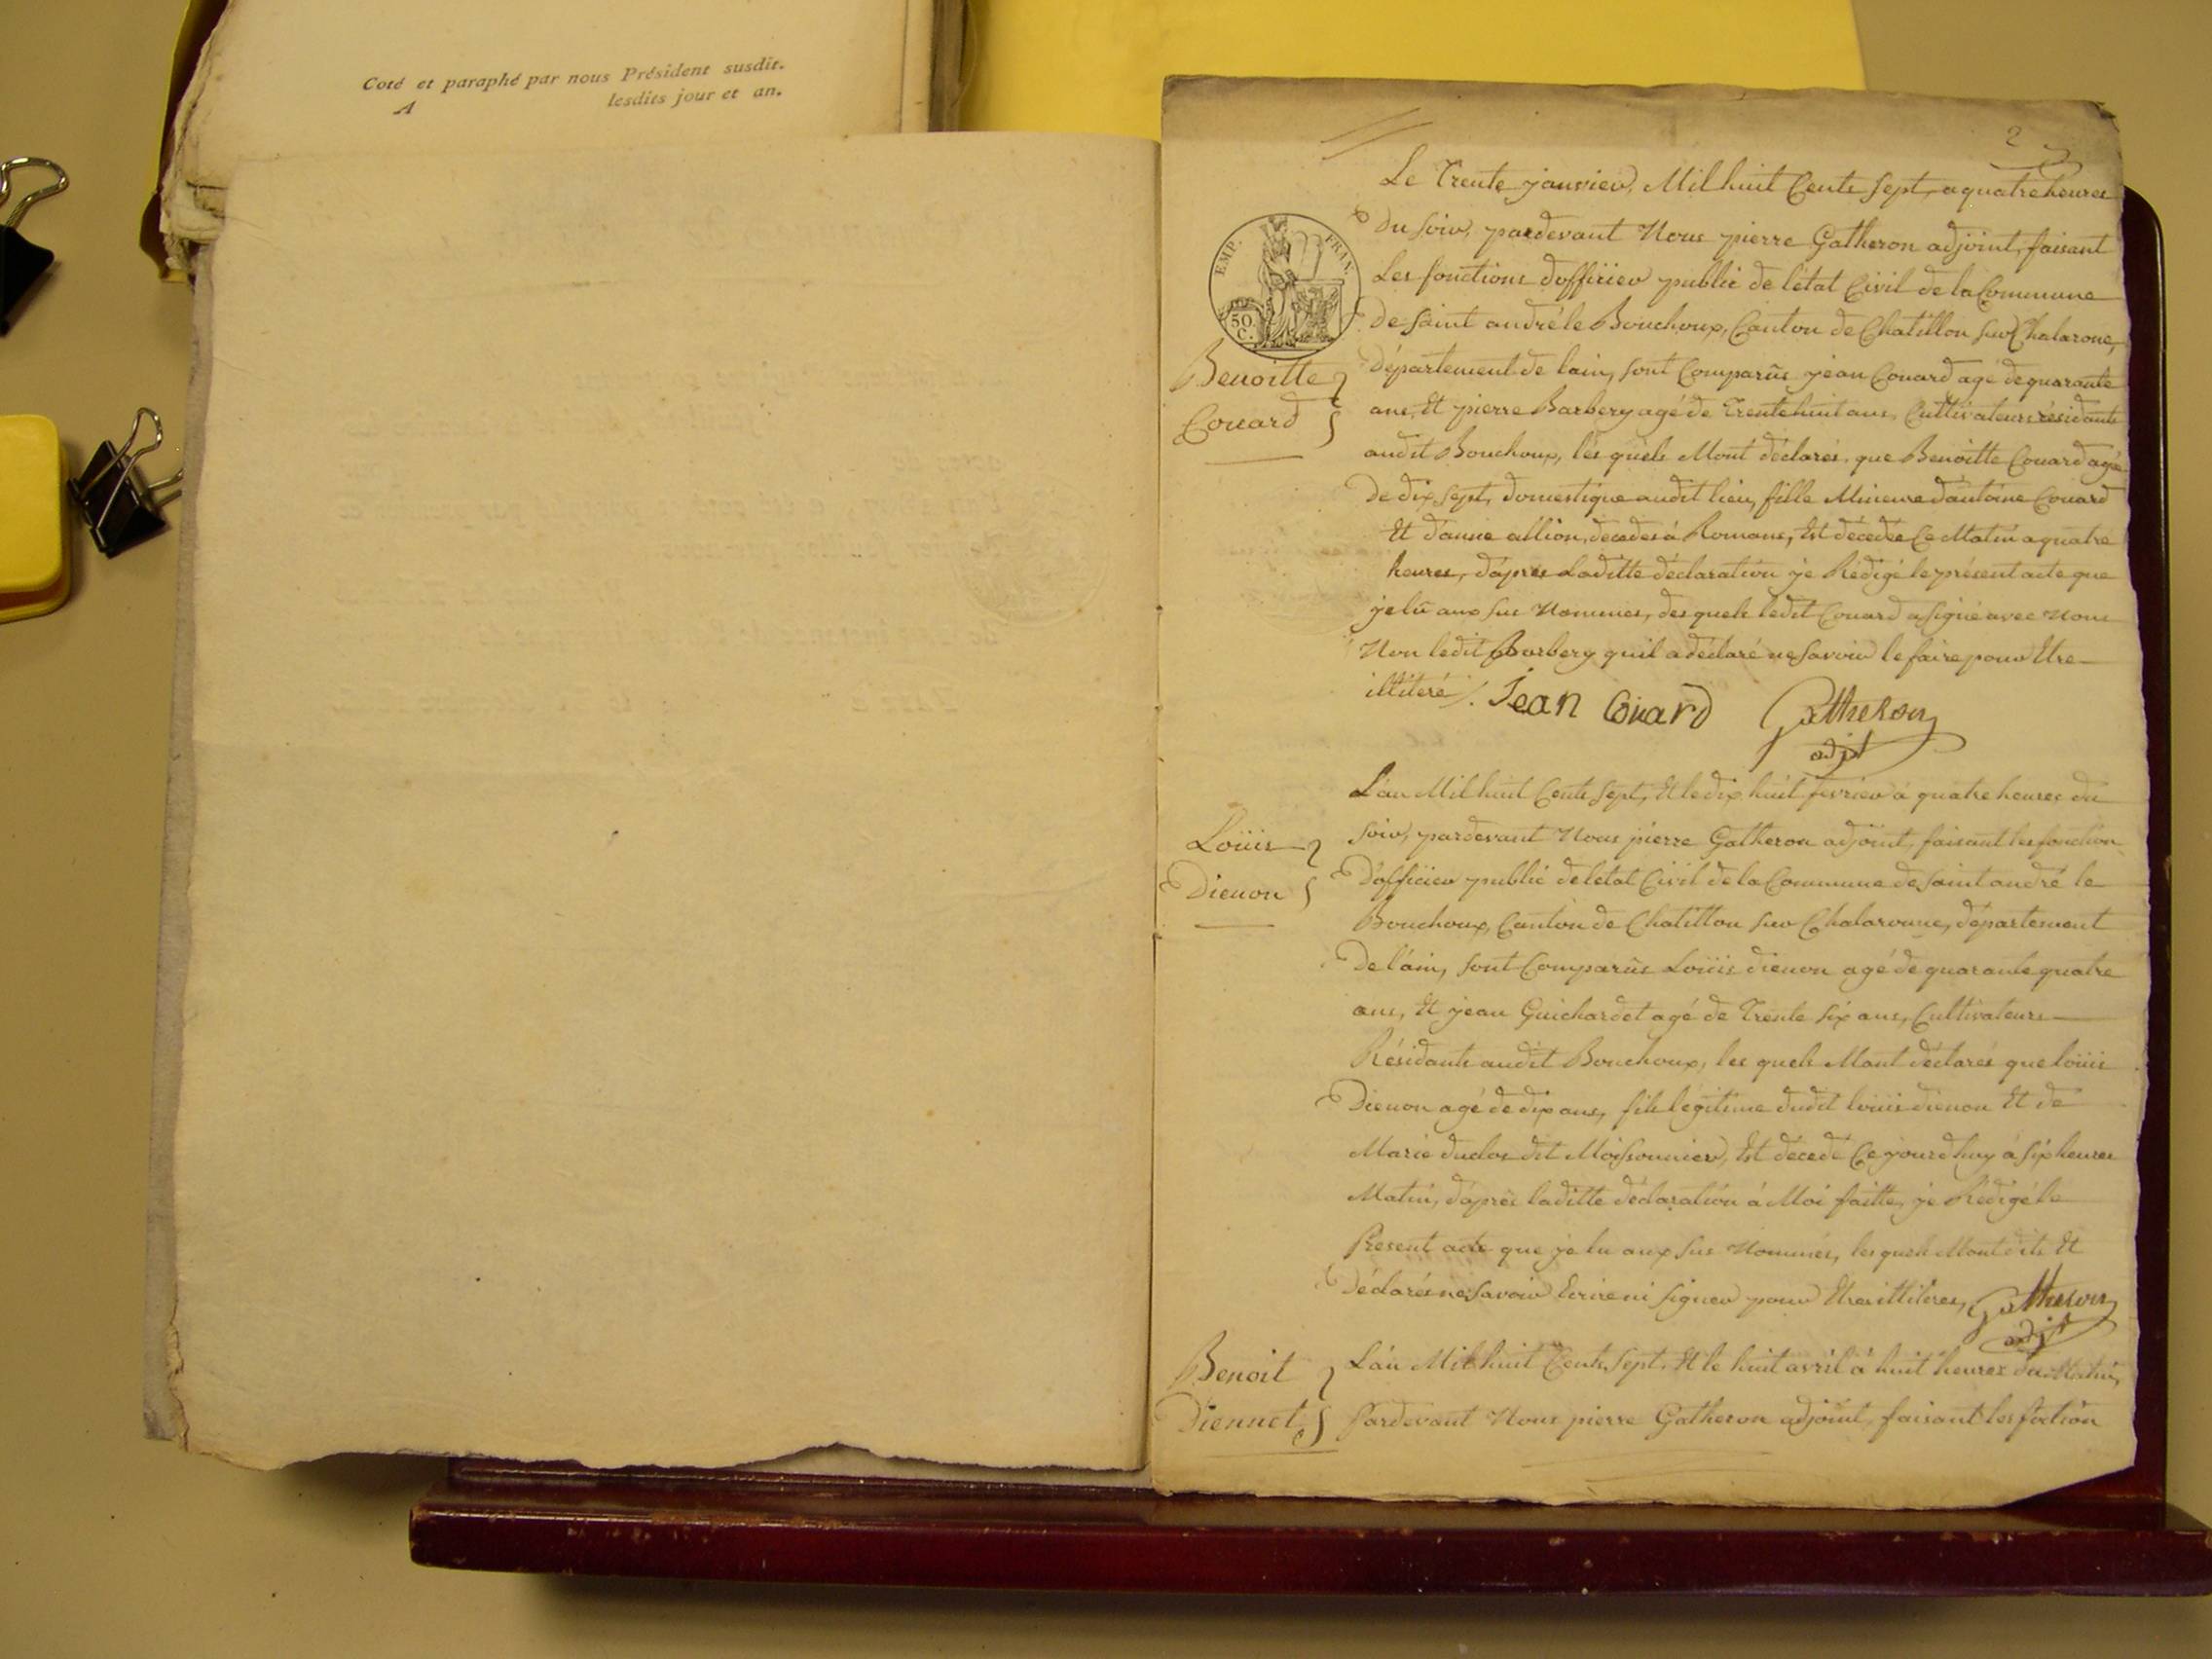 Coté et paraphé par nous Président susdit.
A lesdits jour et an.
2
Le Trente janvier, Mil huit Cents Sept, a quatre heures
EMP. FRAN.
50. C.
du Soir, pardevant Nous pierre Gatheron adjoint, faisant
Les fonctions d'officier public de l'état Civil de la Commune
de Saint andré le Bouchoux, Canton de Chatillon sur Chalarone,
Benoitte
Département de lain, sont Comparûs jean Couard agé de quarante
Couard
ans, Et pierre Barbery agé de Trente huit ans, Cultivateurs résidants
audit Bouchoux, les quels Mont déclarés que Benoitte Couard agée
De dix Sept, domestique audit lieu, fille Mineure d'antoine Couard
Et d'anne allion, decedes à Romans, Est décédée Ce Matin a quatre
heures, d'après Laditte déclaration je Rédigé le présent acte que
je lû aux sus Nommés, des quels ledit Couard a signé avec nous
Non ledit Barbery quil a déclaré ne Savoir le faire pour Etre
illiteré /. Jean Couard Gatheron
adjt
L'an Mil huit Cents Sept, Et le dix huit fevrier à quatre heures du
Loüis
Soir, pardevant Nous pierre Gatheron adjoint, faisant les fonction
Dienon
D'officier public de l'état Civil de la Commune de Saint andré le
Bouchoux, Canton de Chatillon sur Chalaronne, département
De l'ain, sont Comparûs Loüis dienon agé de quarante quatre
ans, Et jean Guichardet agé de Trente Six ans, Cultivateurs
Résidants audit Bouchoux, les quels Mont déclarés que loüis
Dienon agé de dix ans, fils légitime dudit loüis dienon Et de
Marie duclos dit Moissonnier, Est décedé Ce jourdhuy à Six heures
Matin, d'après laditte déclaration à Moi faitte, je Rédigé le
Present acte que je lu aux sus Nommés, les quels Mont dits Et
Déclarés ne Savoir Ecrire ni signer pour Etre illiteres, Gatheron
adjt
Benoit
L'an Mil huit Cents Sept, Et le huit avril à huit heures du Matin,
Diennet
Pardevant Nous pierre Gatheron adjoint, faisant les foction